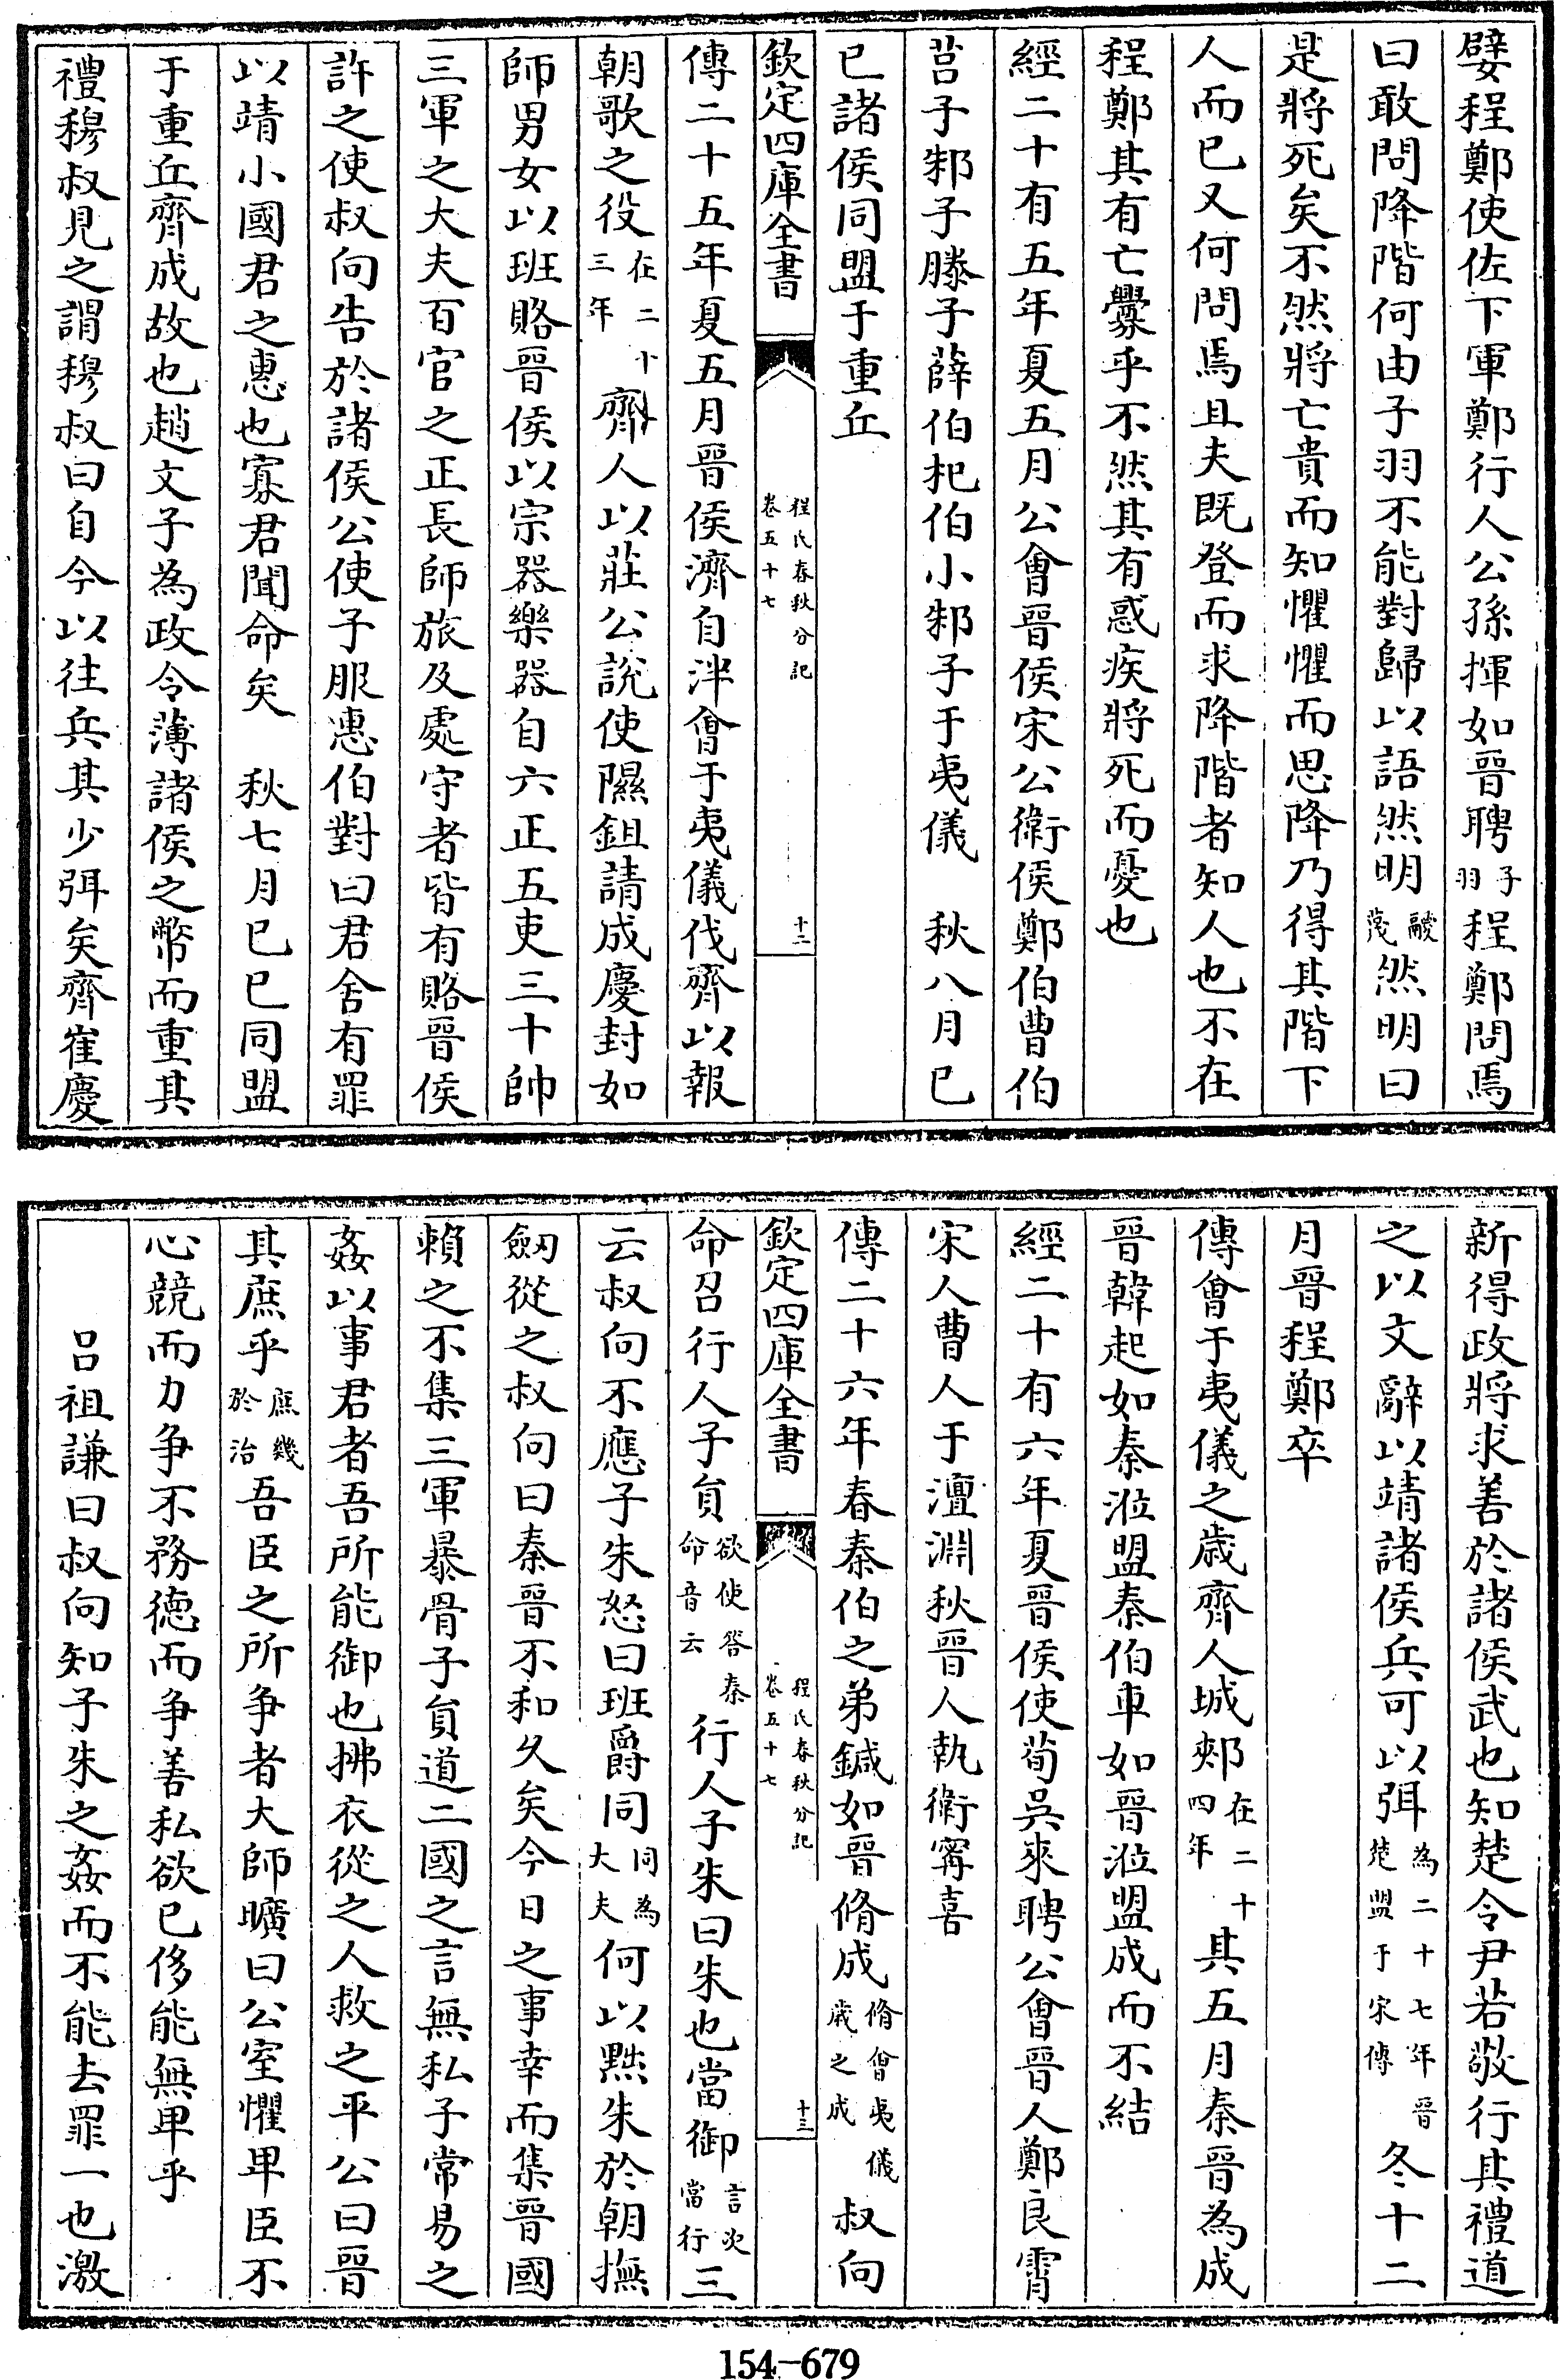 嬖程鄭使佐下軍鄭行人公孫揮如晉聘子羽程鄭問焉
曰敢問降階何由子羽不能對歸以語然明鬷蔑然明曰
是將死矣不然將亡貴而知懼懼而思降乃得其階下
人而已又何問焉且夫既登而求降階者知人也不在
程鄭其有亡釁乎不然其有惑疾將死而憂也
經二十有五年夏五月公會晉侯宋公衛侯鄭伯曹伯
莒子邾子滕子薛伯杞伯小邾子于夷儀　秋八月己
巳諸侯同盟于重丘
欽定四庫全書　程氏春秋分記卷五十七　十二
傳二十五年夏五月晉侯濟自泮會于夷儀伐齊以報
朝歌之役在二十三年齊人以莊公說使隰鉏請成慶封如
師男女以班賂晉侯以宗器樂器自六正五吏三十帥
三軍之大夫百官之正長師旅及處守者皆有賂晉侯
許之使叔向告於諸侯公使子服惠伯對曰君舍有罪
以靖小國君之惠也寡君聞命矣　秋七月己巳同盟
于重丘齊成故也趙文子為政令薄諸侯之幣而重其
禮穆叔見之謂穆叔曰自今以往兵其少弭矣齊崔慶
新得政將求善於諸侯武也知楚令尹若敬行其禮道
之以文辭以靖諸侯兵可以弭為二十七年晉楚盟于宋傳冬十二
月晉程鄭卒
傳會于夷儀之歲齊人城郟在二十四年其五月秦晉為成
晉韓起如秦涖盟秦伯車如晉涖盟成而不結
經二十有六年夏晉侯使荀吳來聘公會晉人鄭良霄
宋人曹人于澶淵秋晉人執衛甯喜
傳二十六年春秦伯之弟鍼如晉脩成脩會夷儀歲之成叔向
欽定四庫全書　程氏春秋分記卷五十七　十三
命召行人子員欲使答秦命音云行人子朱曰朱也當御言次當行三
云叔向不應子朱怒曰班爵同同為大夫何以黜朱於朝撫
劔從之叔向曰秦晉不和久矣今日之事幸而集晉國
賴之不集三軍暴骨子員道二國之言無私子常易之
姦以事君者吾所能御也拂衣從之人救之平公曰晉
其庶乎庶幾於治吾臣之所爭者大師曠曰公室懼卑臣不
心競而力爭不務德而爭善私欲已侈能無卑乎
呂祖謙曰叔向知子朱之姦而不能去罪一也激
154-679